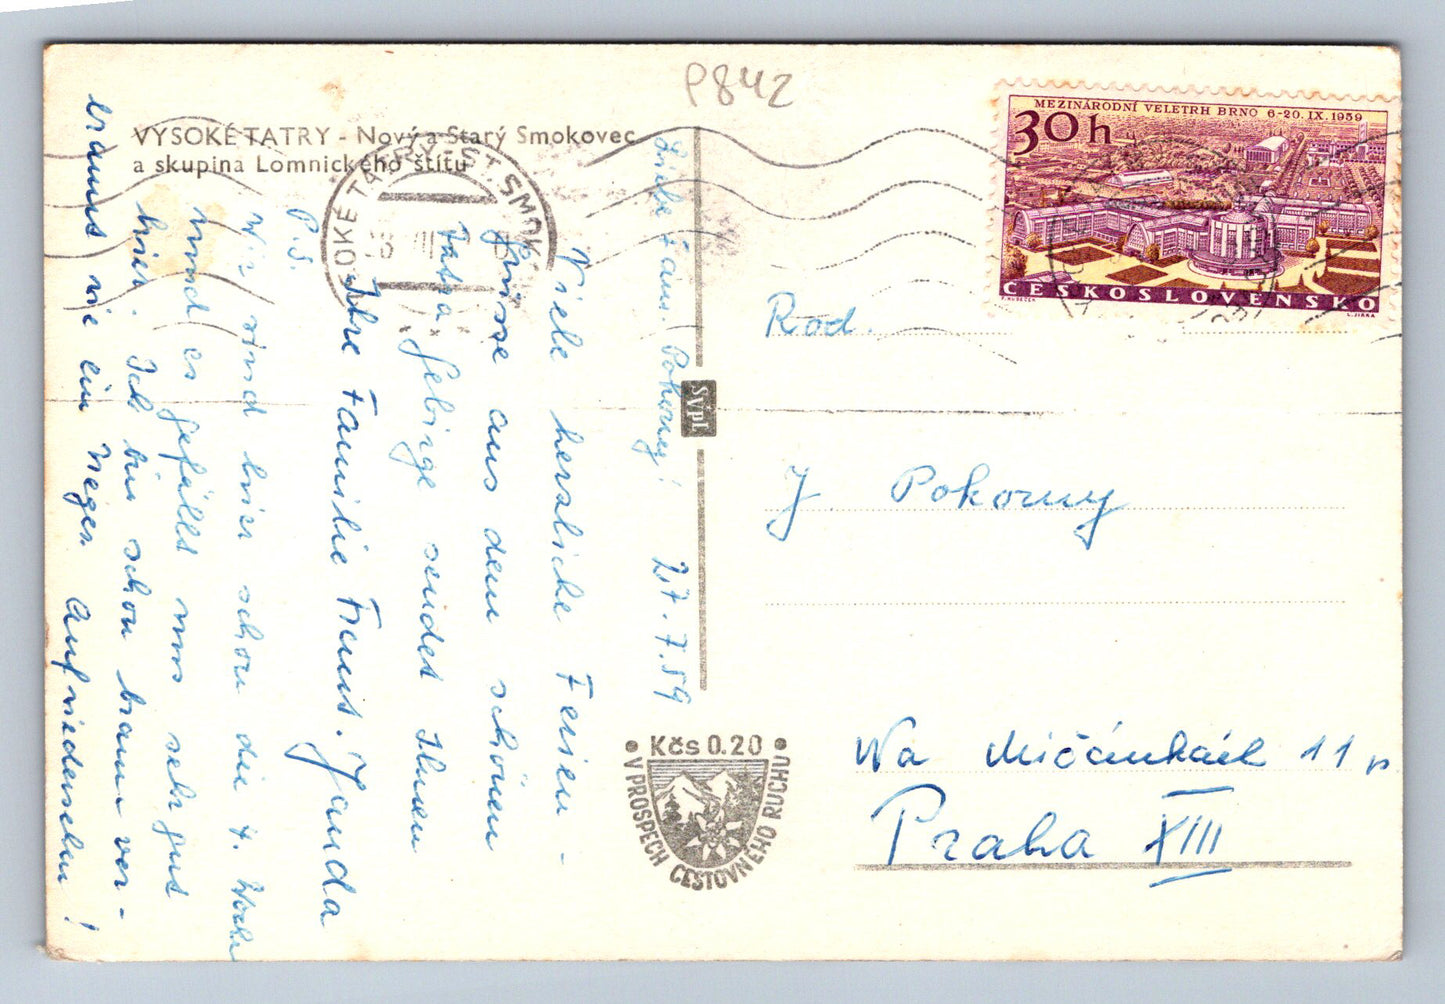 P842
VYSOKÉ TATRY - Nový a Starý Smokovec
a skupina Lomnického štítu
MEZINÁRODNÍ VELETRH BRNO 6-20. IX. 1959
30h
ČESKOSLOVENSKO
OKÉ TATRY - ST. SMOK
Liebe Fam. Pokorny! 27.7.59
Viele herzliche Ferien-
grüsse aus dem schönen
Tatra Gebirge sendet Ihnen
Ihre Familie Franit. Janda
P.S.
Wir sind hier schon die 4. Woche
und es gefällt uns sehr gut
hier. Ich bin schon braun ver-
brannt wie ein Neger. Aufwiedersehn!
SVPL
Rod.
J Pokorny
Na Mičánkách 11
Praha XIII
Kčs 0.20
V PROSPĚCH CESTOVNÉHO RUCHU